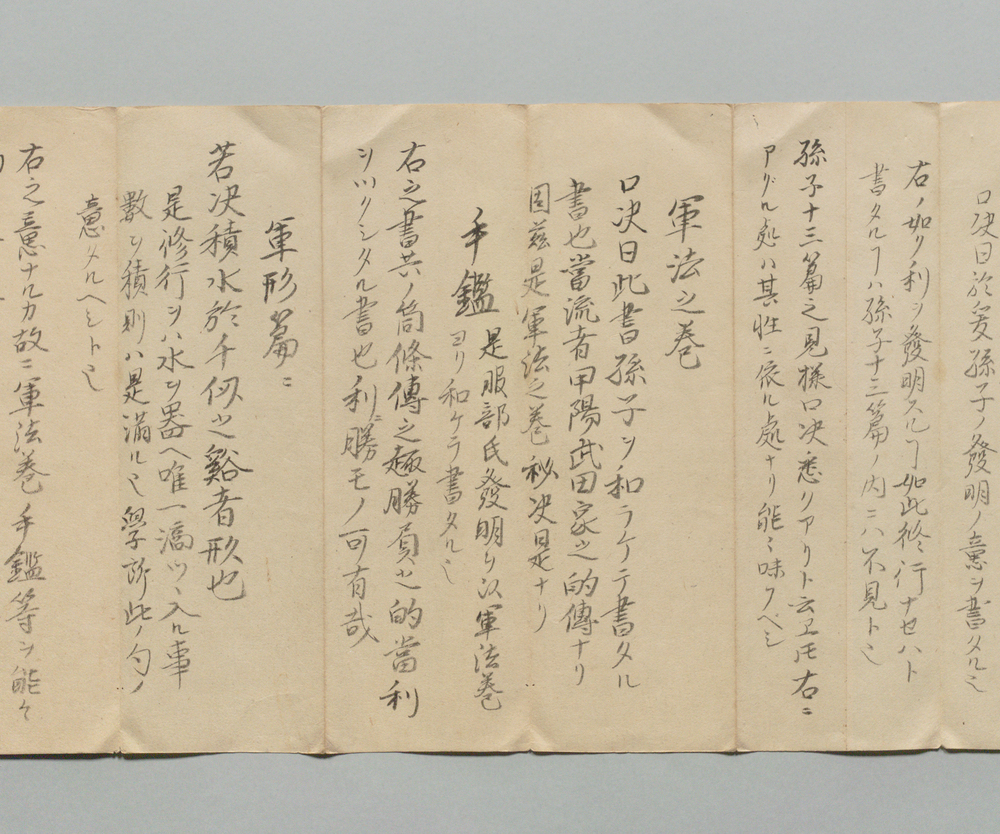 口决曰於爰孫子ノ發明ノ意ヲ書タルミ
右ノ如ク利ヲ發明スルヿ如此修行ナセハト
書タルヿハ孫子十三篇ノ内ニハ不見トミ
孫子十三篇之見様口决悉クアリト云エ𪜈右ニ
アグル処ハ其性ニ依ル處ナリ能ミ味フベシ
軍法之巻
口决曰此書孫子ヲ和ラケテ書タル
書也當流者甲陽武田家之的傳ナリ
因茲是軍法之巻秘决是ナリ
手鑑 是服部氏發明シ以軍法巻
ヨリ和ケテ書タルミ
右之書共ノ箇條傳之趣勝負之的當利
シツクシタル書也利勝モノ可有哉
軍形篇ニ
若决積水於千仞之谿者形也
是修行ヲハ水ヲ器ヘ唯一滴ツヽ入ル事
數ヲ積則ハ是滿ルミ學所此ノ勺ノ
意タルヘシトミ
右之意ナルカ故ニ軍法巻手鑑等ヲ能々